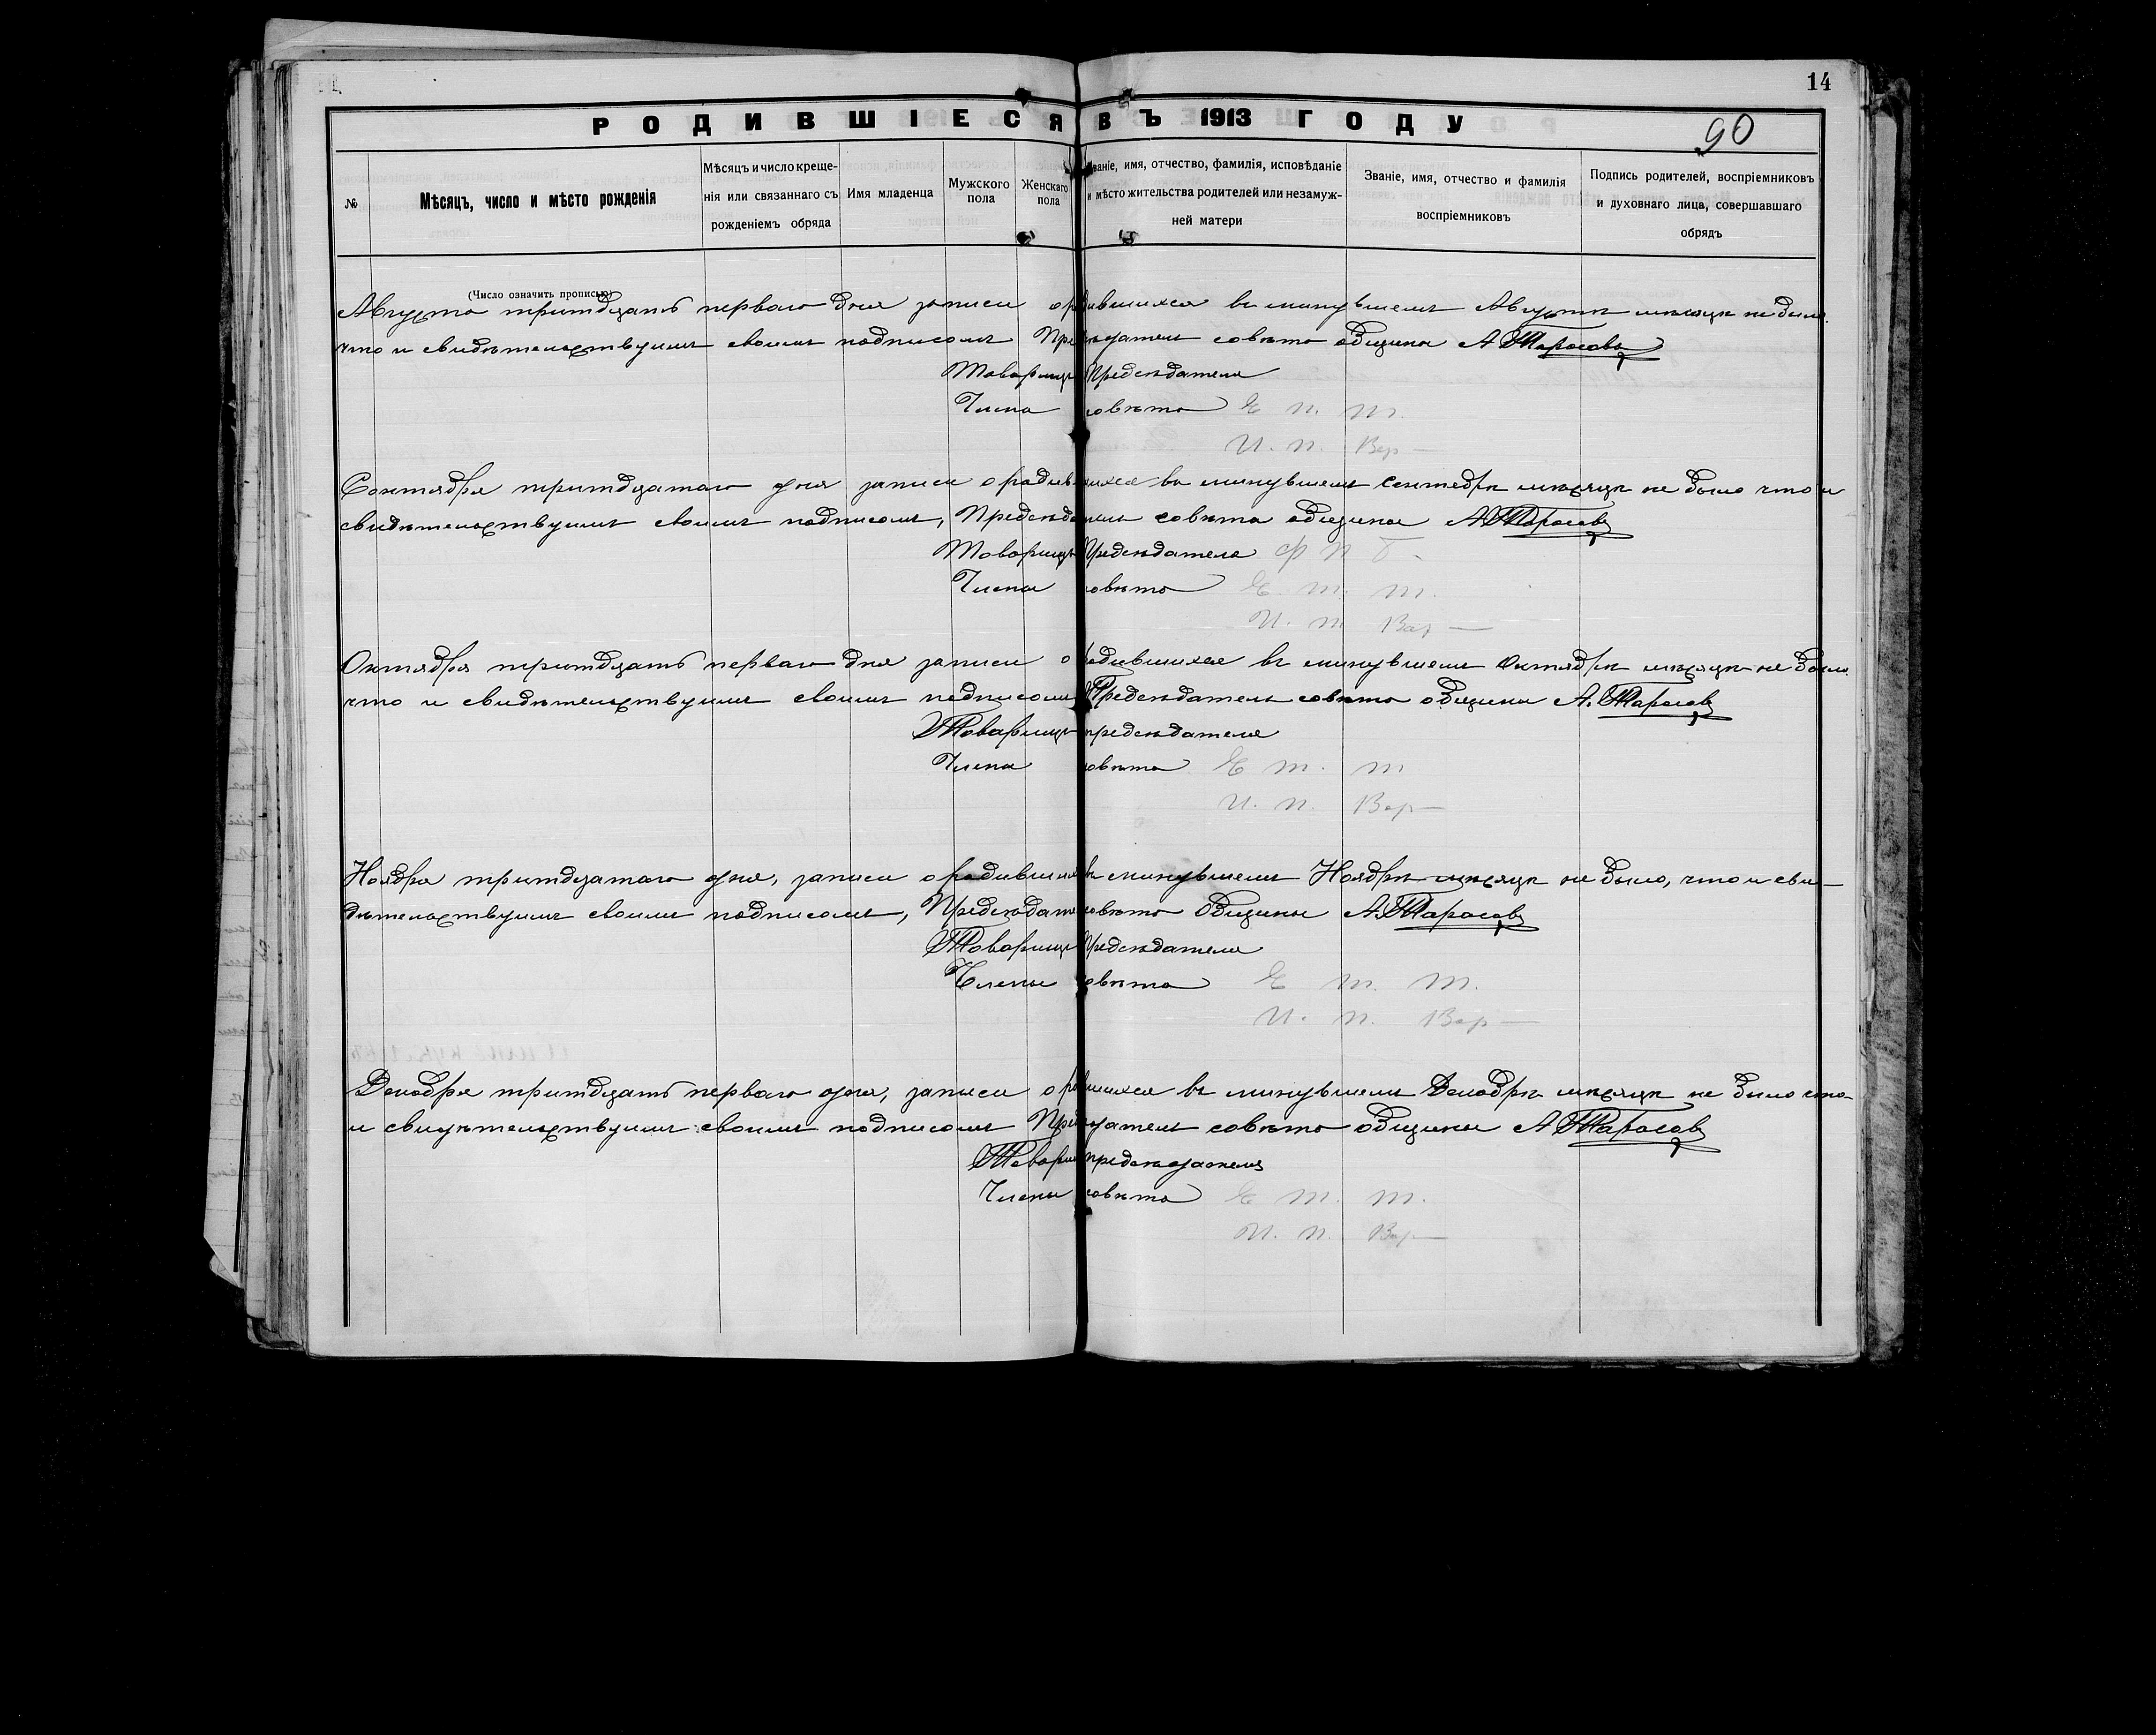 14
РОДИВШІЕСЯ ВЪ 1913 ГОДУ
90
№
Мѣсяцъ, число и мѣсто рожденія
Мѣсяцъ и число креще-
нія или связаннаго съ
рожденіемъ обряда
Имя младенца
Мужского
пола
Женскаго
пола
Званіе, имя, отчество, фамилія, исповѣданіе
и мѣсто жительства родителей или незамуж-
ней матери
Званіе, имя, отчество и фамилія
воспріемниковъ
Подпись родителей, воспріемниковъ
и духовнаго лица, совершавшаго
обрядъ
(Число означить прописью)
Августа тритдцать перваго дня записи о родившихся въ минувшемъ Августѣ мѣсяцѣ не было
что и свидѣтельствуимъ своимъ подписомъ Предсѣдатель совѣта общины А Тарасовъ
Товарищъ Предсѣдателя
Члена совѣта Е П. Т.
И. П. Вар
Сентября тритдцатаго дня записи о родившихся въ минувшемъ Сентябрѣ мѣсяцѣ не было что и
свидѣтельствуимъ своимъ подписомъ, Предсѣдатель совѣта общины А Тарасовъ
Товарищъ Предсѣдателя Ф П Б.
Члена совѣта Е. Т. Т.
И. П Вар
Октября тритдцать перваго дня записи о родившихся въ минувшемъ Октябрѣ мѣсяцѣ не было
что и свидѣтельствуимъ своимъ подписомъ Предсѣдатель совѣта общины А. Тарасовъ
Товарищъ предсѣдателя
Члена совѣта Е Т. Т
И. П. Вар
Ноября тритдцатаго дня, записи о родившихся въ минувшемъ Ноябрѣ мѣсяцѣ не было, что и сви-
дѣтельствуимъ своимъ подписомъ, Предсѣдатель совѣта Общины А. Тарасовъ
Товарищъ Предсѣдателя
Члены совѣта Е Т. Т.
И. П. Вар
Декабря тритдцать перваго дня, записи о родившихся въ минувшемъ Декабрѣ мѣсяцѣ не было что
и свидѣтельствуимъ своимъ подписомъ Предсѣдатель совѣта общины А Тарасовъ
Товарищъ предсѣдателя
Члены совѣта Е Т. Т.
И. П. Вар